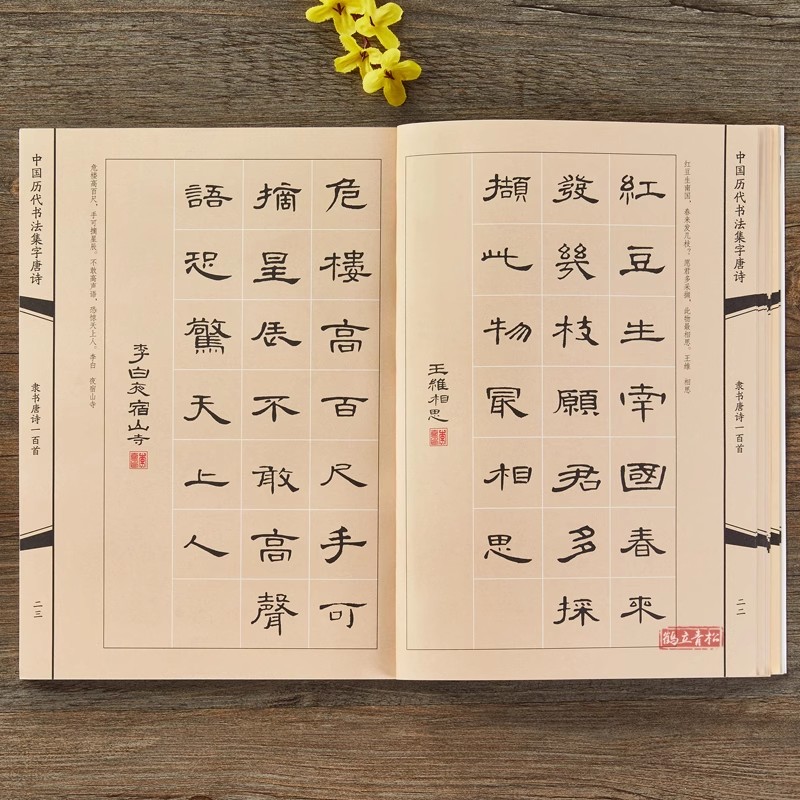 中国历代书法集字唐诗
隶书唐诗一百首
二二
红豆生南国，春来发几枝？愿君多采撷，此物最相思。王维　相思
紅豆生南國春來
發幾枝願君多採
擷此物最相思
王維相思
鹤立青松
危樓高百尺手可
摘星辰不敢高聲
語恐驚天上人
李白夜宿山寺
危楼高百尺，手可摘星辰。不敢高声语，恐惊天上人。李白　夜宿山寺
中国历代书法集字唐诗
隶书唐诗一百首
二三